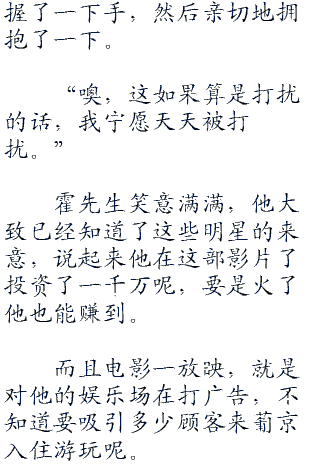 握了一下手，然后亲切地拥
抱了一下。
“噢，这如果算是打扰
的话，我宁愿天天被打
扰。”
霍先生笑意满满，他大
致已经知道了这些明星的来
意，说起来他在这部影片了
投资了一千万呢，要是火了
他也能赚到。
而且电影一放映，就是
对他的娱乐场在打广告，不
知道要吸引多少顾客来葡京
入住游玩呢。